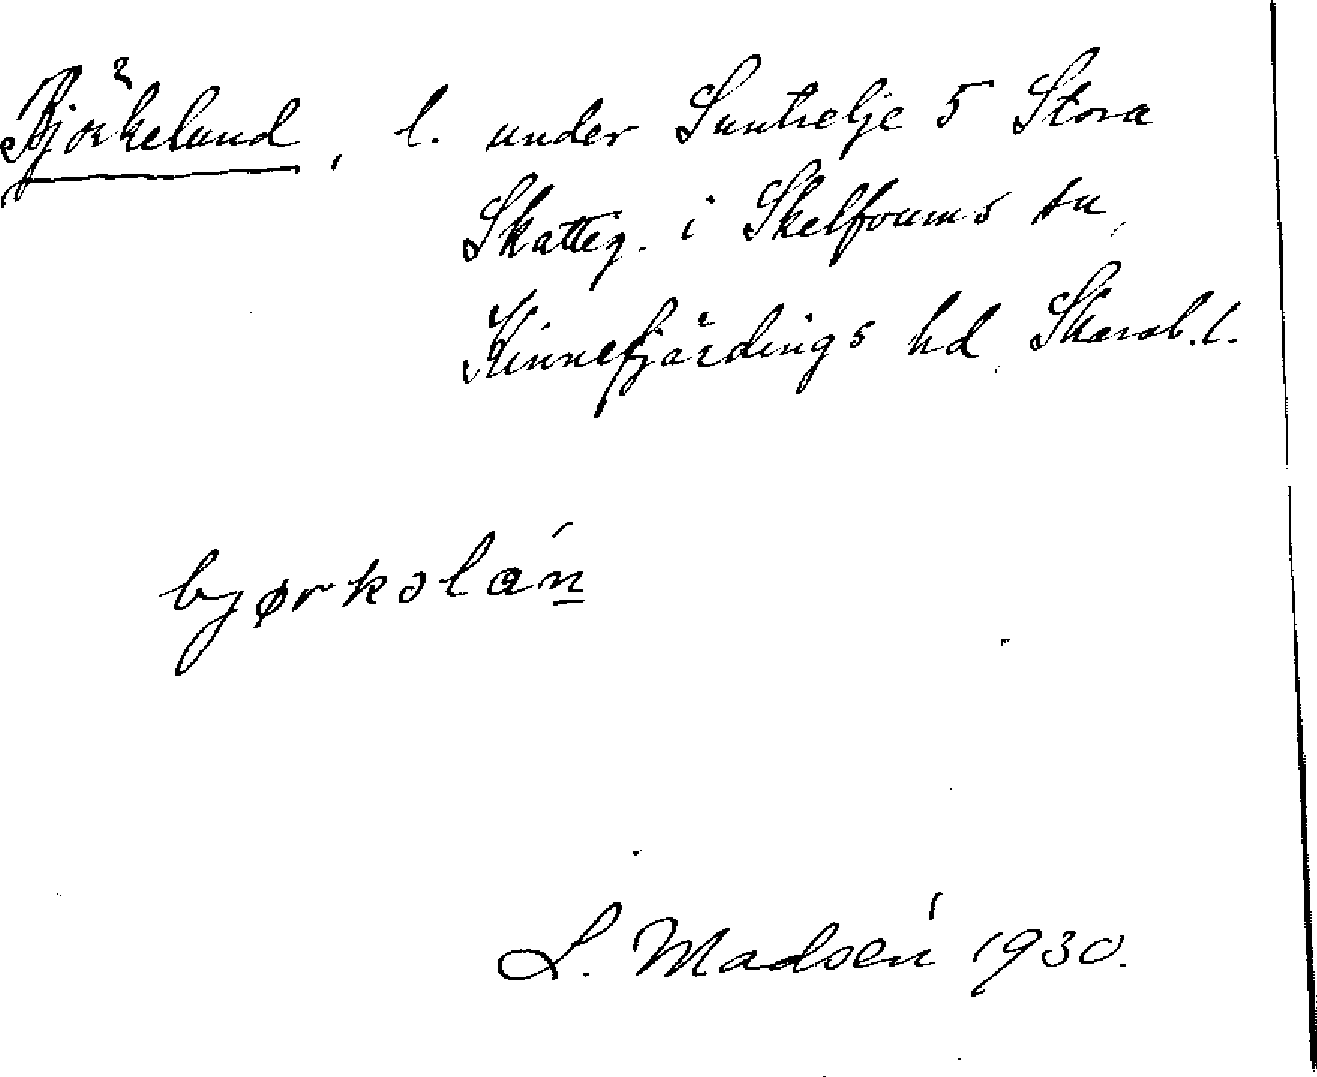 Björkelund, l. under Suntrelje 5 Stora
Skatteg. i Skelfvums sn,
Kinnefjärdings hd, Skarab. l.
bjørkəlán
L. Madsén 1930.